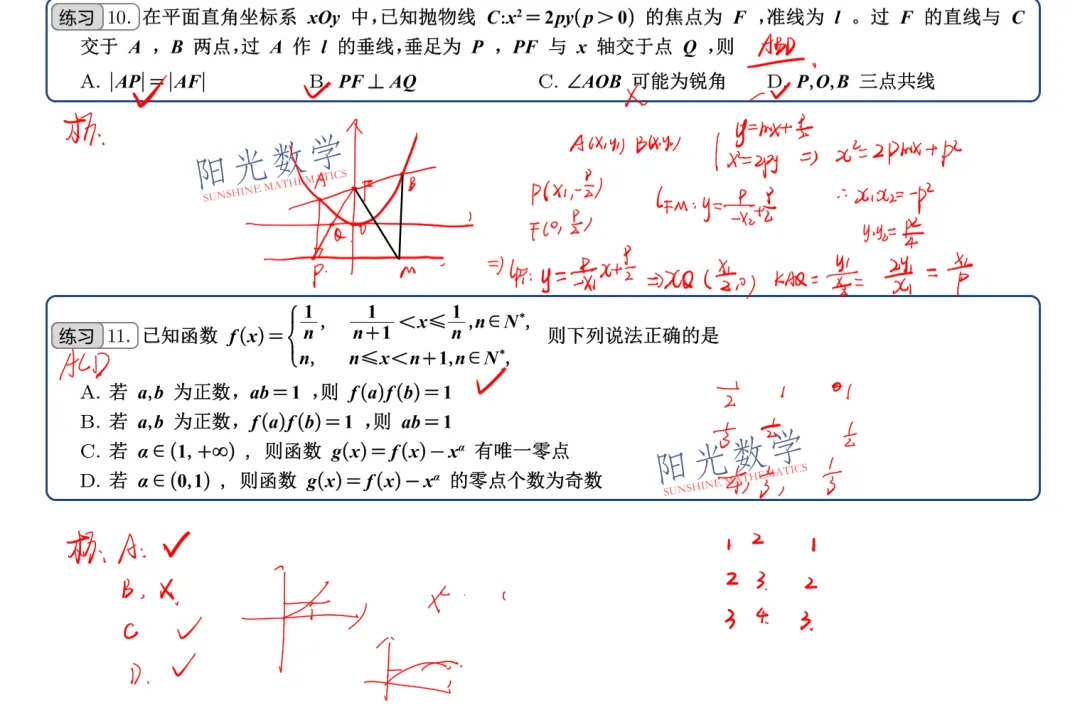 练习 10. 在平面直角坐标系 xOy 中,已知抛物线 C:x²=2py(p>0) 的焦点为 F ,准线为 l 。过 F 的直线与 C
交于 A , B 两点,过 A 作 l 的垂线,垂足为 P , PF 与 x 轴交于点 Q ,则 ABD
A. |AP|=|AF| B. PF⊥AQ C. ∠AOB 可能为锐角 D. P,O,B 三点共线
杨:
阳光数学
SUNSHINE MATHEMATICS
A F B
Q O
P. M
A(x₁y₁) B(x₂y₂)
y=mx+p/2
x²=2py ⇒ x²=2pmx+p²
P(x₁,-p/2)
F(0,p/2)
l_FM: y=p/-x₂+p/2
∴x₁x₂=-p²
y₁y₂=p²/4
⇒ l_PF: y=p/-x₁x+p/2 ⇒ xQ(x₁/2,0) KAQ=y₁/x₁/2=2y₁/x₁=x₁/p
练习 11. 已知函数 f(x)={1/n, 1/(n+1)<x≤1/n,n∈N*,
n, n≤x<n+1,n∈N*, 则下列说法正确的是
ACD
A. 若 a,b 为正数, ab=1 ,则 f(a)f(b)=1
B. 若 a,b 为正数, f(a)f(b)=1 ,则 ab=1
C. 若 α∈(1,+∞) , 则函数 g(x)=f(x)-x^α 有唯一零点
D. 若 α∈(0,1) , 则函数 g(x)=f(x)-x^α 的零点个数为奇数
1/2 1 1
1/3 1/2 1/2
1/4, 1/3, 1/3
阳光数学
SUNSHINE MATHEMATICS
杨: A: ✓
B. ×
C ✓
D. ✓
1 2 1
2 3. 2
3 4. 3.